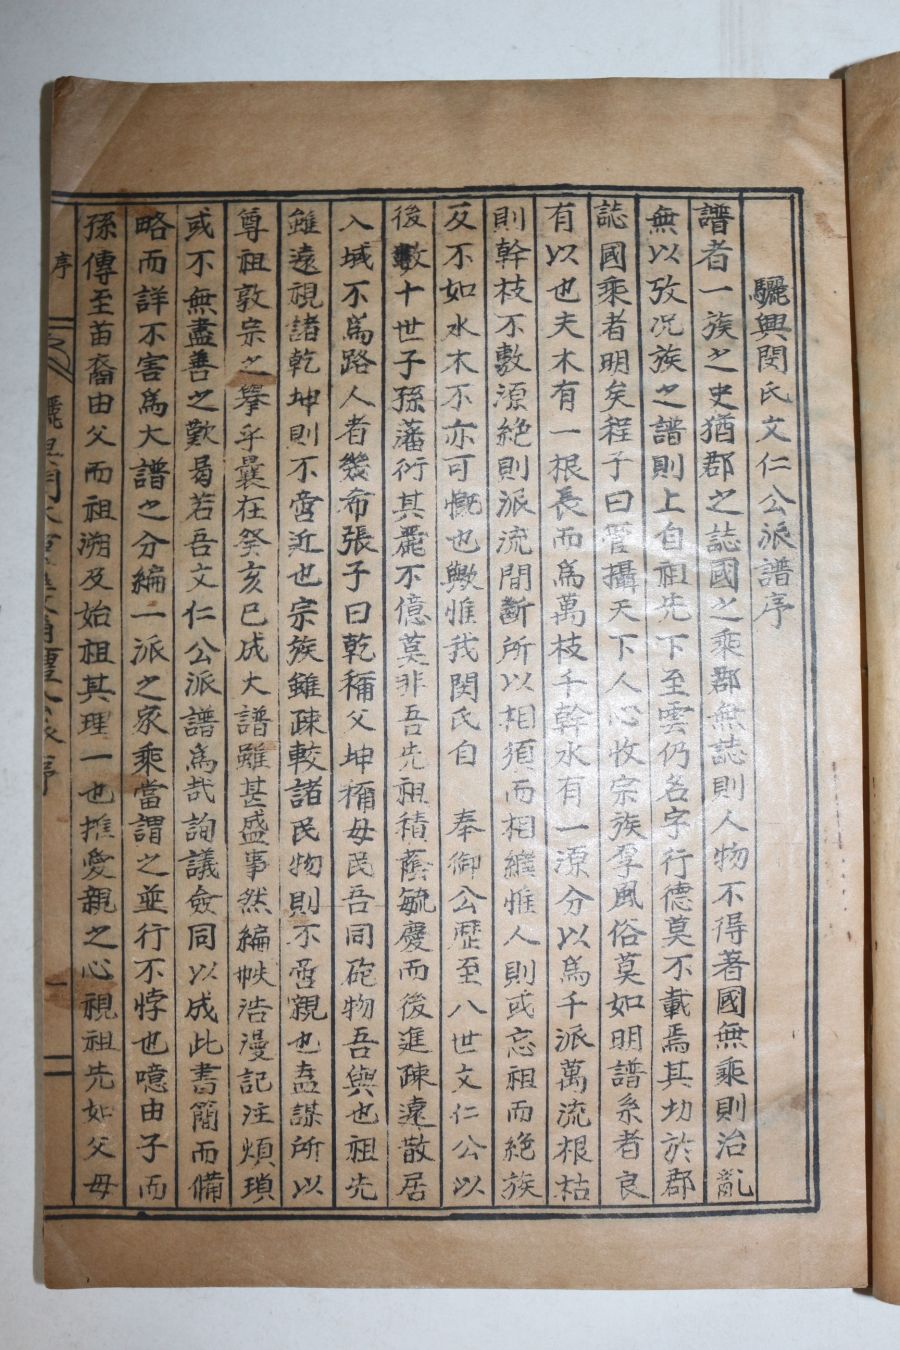 驪興閔氏文仁公派譜序
譜者一族之史猶郡之誌國之乘郡無誌則人物不得著國無乘則治亂
無以攷况族之譜則上自祖先下至雲仍名字行德莫不載焉其功於郡
誌國乘者明矣程子曰管攝天下人心收宗族厚風俗莫如明譜系者良
有以也夫木有一根長而爲萬枝千幹水有一源分以爲千派萬流根枯
則幹枝不敷源絶則派流間斷所以相須而相繼惟人則或忘祖而絶族
反不如水木不亦可慨也歟惟我閔氏自 奉御公歷至八世文仁公以
後數十世子孫藩衍其麗不億莫非吾先祖積蔭毓慶而後進疎遠散居
入城不爲路人者幾希張子曰乾稱父坤稱母民吾同砲物吾與也祖先
雖遠視諸乾坤則不啻近也宗族雖疎較諸民物則不啻親也盍謀所以
尊祖敦宗之擧乎曩在癸亥已成大譜雖甚盛事然編帙浩漫記注煩瑣
或不無盡善之歎曷若吾文仁公派譜爲哉詢議僉同以成此書簡而備
略而詳不害爲大譜之分編一派之家乘當謂之並行不悖也噫由子而
孫傳至苗裔由父而祖溯及始祖其理一也推愛親之心視祖先如父母
序
序 一